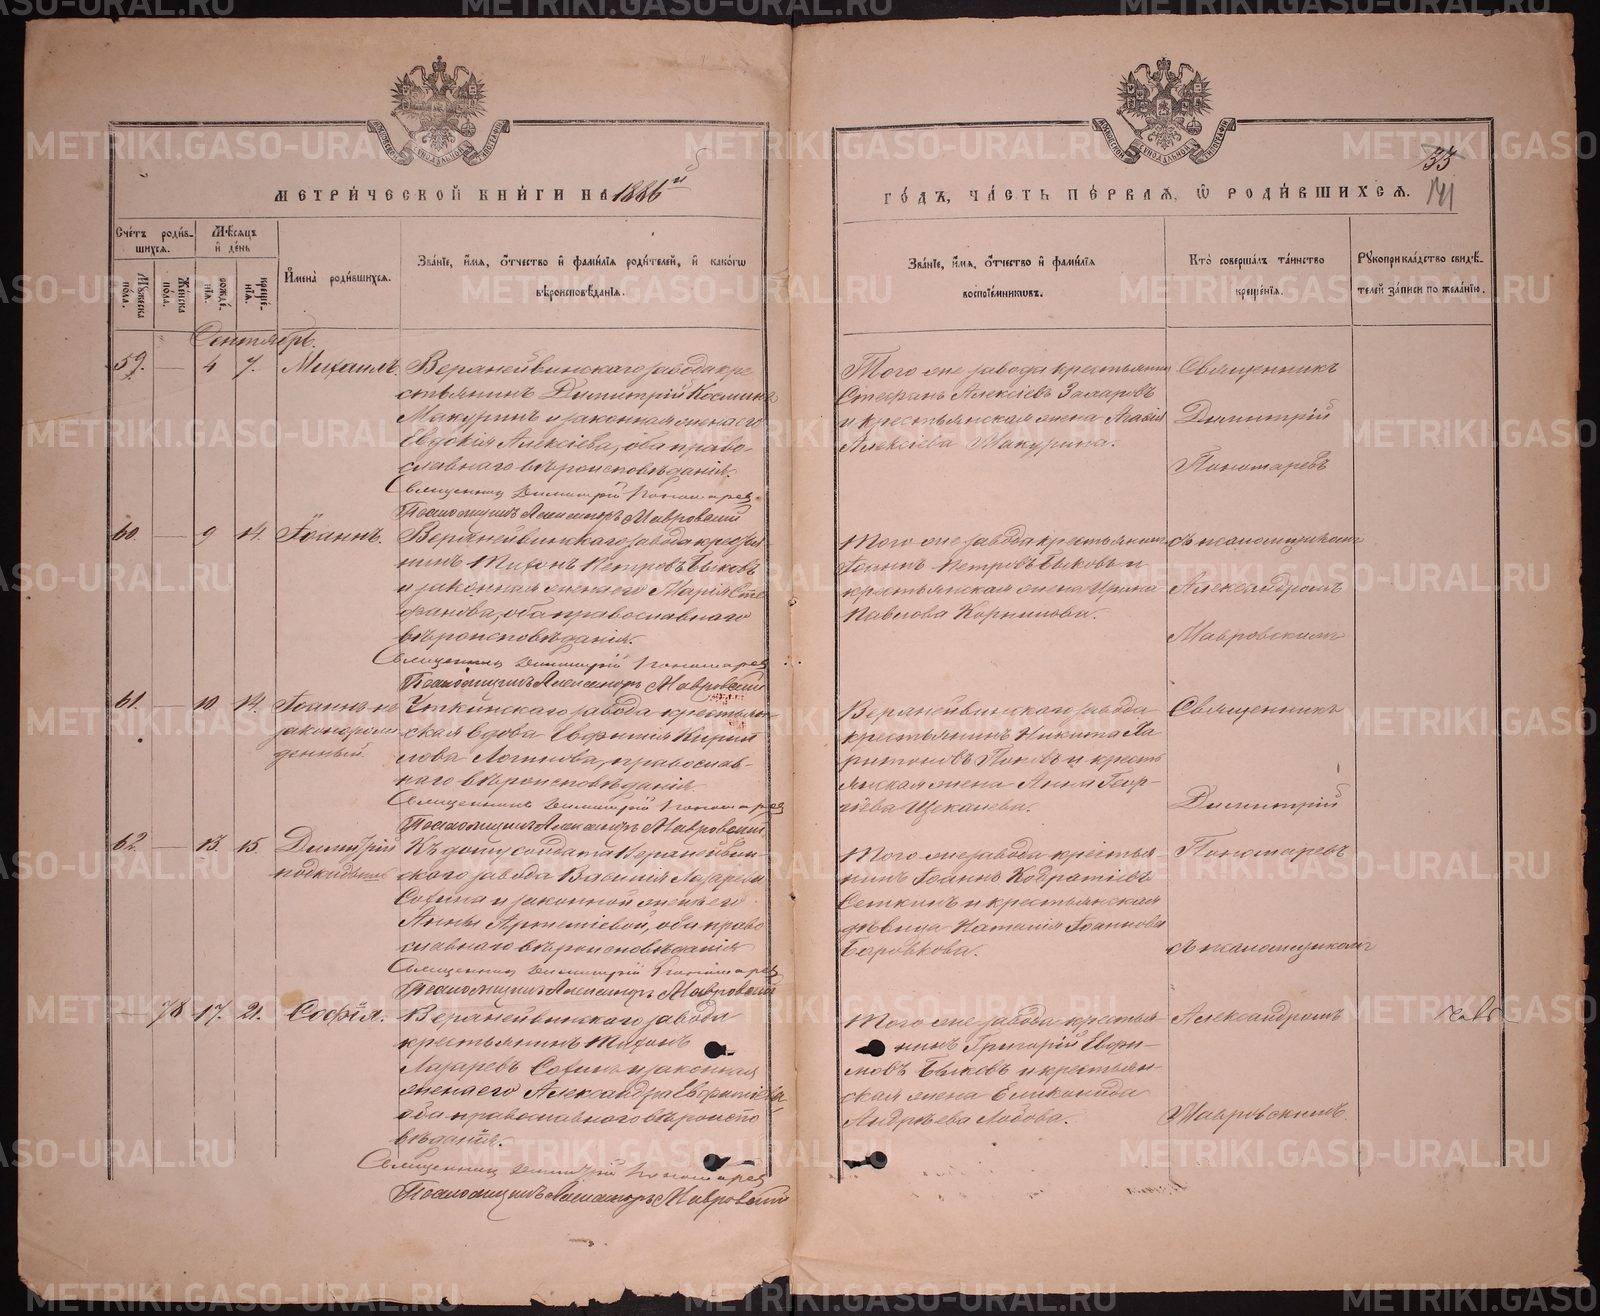 МЕТРИ́ЧЕСКОЙ КНИ́ГИ НА 1886й
ГО́ДЪ, ЧА́СТЬ ПЕ́РВАЯ, Ѡ РОДИ́ВШИХСЯ.
33
141
Сче́тъ роди́вшихся.
Мѣ́сяцъ и де́нь
Имена̀ роди́вшихся.
Зва́нїе, и́мя, о́тчество и фами́лїя роди́телей, и како́гѡ
вѣроисповѣ́данїя.
Зва́нїе, и́мя, о́тчество и фами́лїя
воспрїе́мниковъ.
Кто̀ соверша́лъ та́инство
креще́нїя.
Рꙋкоприкла́дство свидѣ́-
телей за́писи по жела́нїю.
Мꙋ́жеска по́ла.
Же́нска по́ла.
рожде́нїя.
креще́нїя.
Сентябрь.
59. — 4 7. Михаилъ.
Верхнейвинскаго завода кре
стьянинъ Димитрій Косминъ
Макуринъ и законная жена его
Евдокія Алексіева, оба право-
славнаго вѣроисповѣданія.
Священникъ Димитрій Пономарев
Псаломщикъ Александръ Мавровскій
Того же завода крестьянинъ
Стефанъ Алексіевъ Захаровъ
и крестьянская жена Агафія
Алексіева Макурина.
Священникъ
Димитрій
Пономаревъ
60. — 9 14. Іоаннъ.
Верхнейвинскаго завода крестья
нинъ Тихонъ Петровъ Быковъ
и законная жена его Марія Сте
фанова, оба православнаго
вѣроисповѣданія.
Священникъ Димитрій Пономарев
Псаломщикъ Александръ Мавровскій
Того же завода крестьянинъ
Іоаннъ Петровъ Быковъ и
крестьянская жена Ирина
Павлова Корнилова.
съ псаломщикомъ
Александромъ
Мавровскимъ
61. — 10. 14. Іоаннъ не
законорож
денный.
Уткинскаго завода крестьян-
ская вдова Евфимія Кирил
лова Логинова, православ-
наго вѣроисповѣданія
Священникъ Димитрій Пономарев
Псаломщикъ Александръ Мавровскій
Верхнейвинскаго завода
крестьянинъ Никита Ха
ритоновъ Поповъ и кресть
янская жена Анна Геор-
гіева Щекалева.
Священникъ
Димитрій
62. — 13. 15. Димитрій
подкидышъ
Къ дому солдата Верхнейвин-
скаго завода Василія Лазарева
Софина и законной жены его
Анны Артеміевой, оба право
славнаго вѣроисповѣданія
Священникъ Димитрій Пономарев
Псаломщикъ Александръ Мавровскій
Того же завода крестья-
нинъ Іоаннъ Кодратіевъ
Сеткинъ и крестьянская
дѣвица Наталія Іоаннова
Боровкова.
Пономаревъ
съ псаломщикомъ
— 78 17. 21. Софія.
Верхнейвинскаго завода
крестьянинъ Тихонъ
Лазаревъ Софинъ и законная
жена его Александра Евфиміева
оба православнаго вѣроиспо
вѣданія.
Священникъ Димитрій Пономарев
Псаломщикъ Александръ Мавровскій
Того же завода крестья
нинъ Григорій Евфи-
мовъ Быковъ и крестьян-
ская жена Еликонида
Андреева Лобова.
Александромъ
Мавровскимъ.